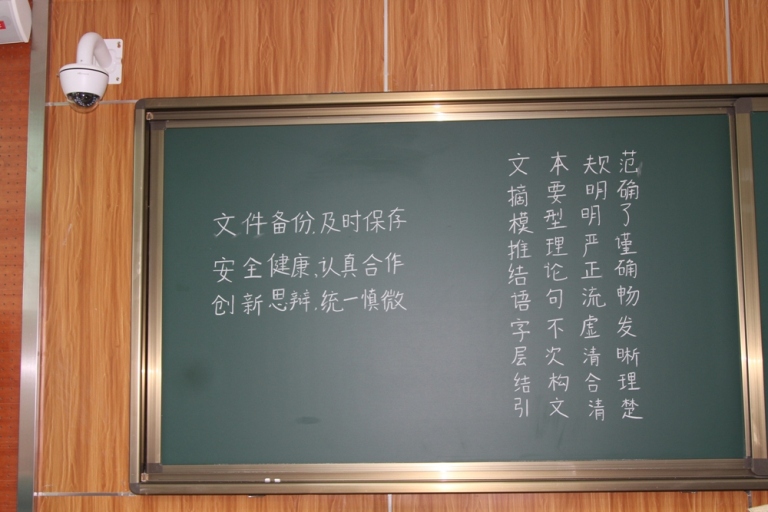 文件备份,及时保存
安全健康,认真合作
创新思辩,统一慎微
文本规范
摘要明确
模型明了
推理严谨
结论正确
语句流畅
字不虚发
层次清晰
结构合理
引文清楚